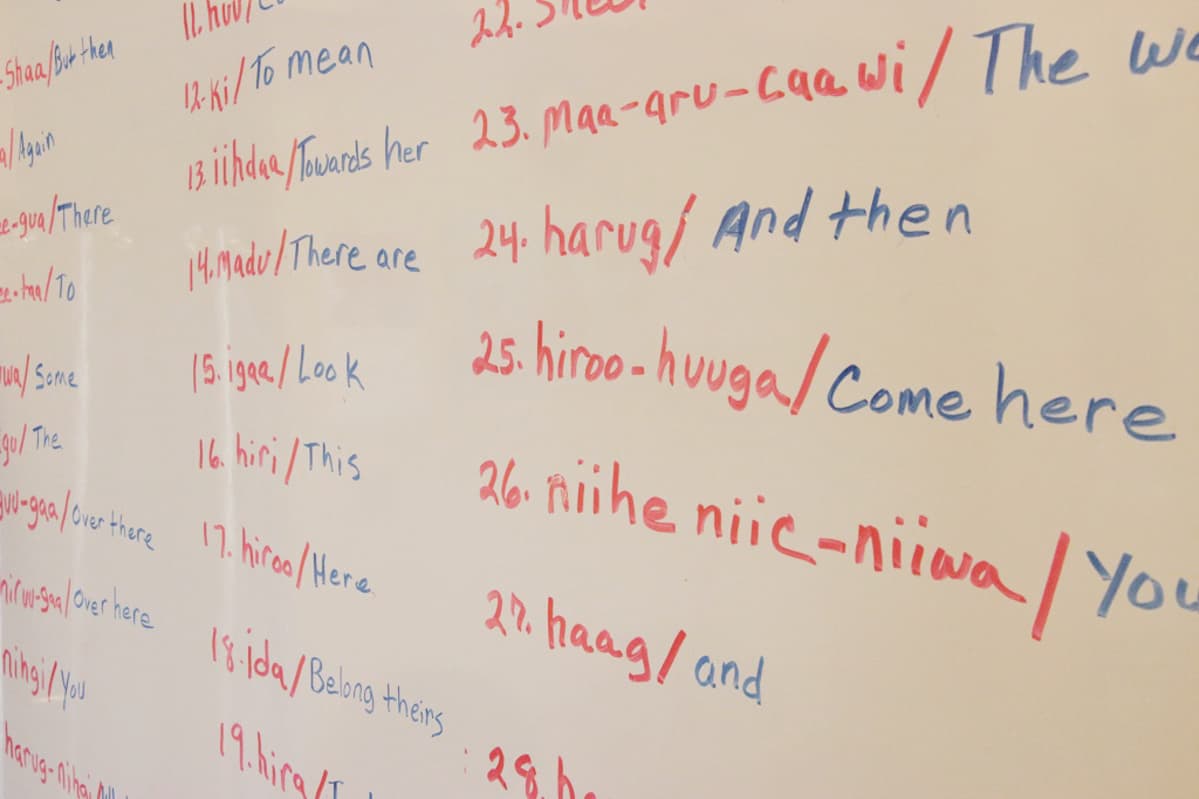 Shaa/But then
/Again
e-gua/There
/To
wa/Some
gu/The
guu-gaa/Over there
/Over here
nihgi/You
harug-nihgi/
11. huu/
12. Ki/To mean
13. iihdaa/Towards her
14. madu/There are
15. igaa/Look
16. hiri/This
17. hiroo/Here
18. ida/Belong theirs
19. hira/
22.
23. maa-aru-caawi/The
24. harug/And then
25. hiroo-huuga/Come here
26. niihe niic-niiwa/You
27. haag/and
28. h